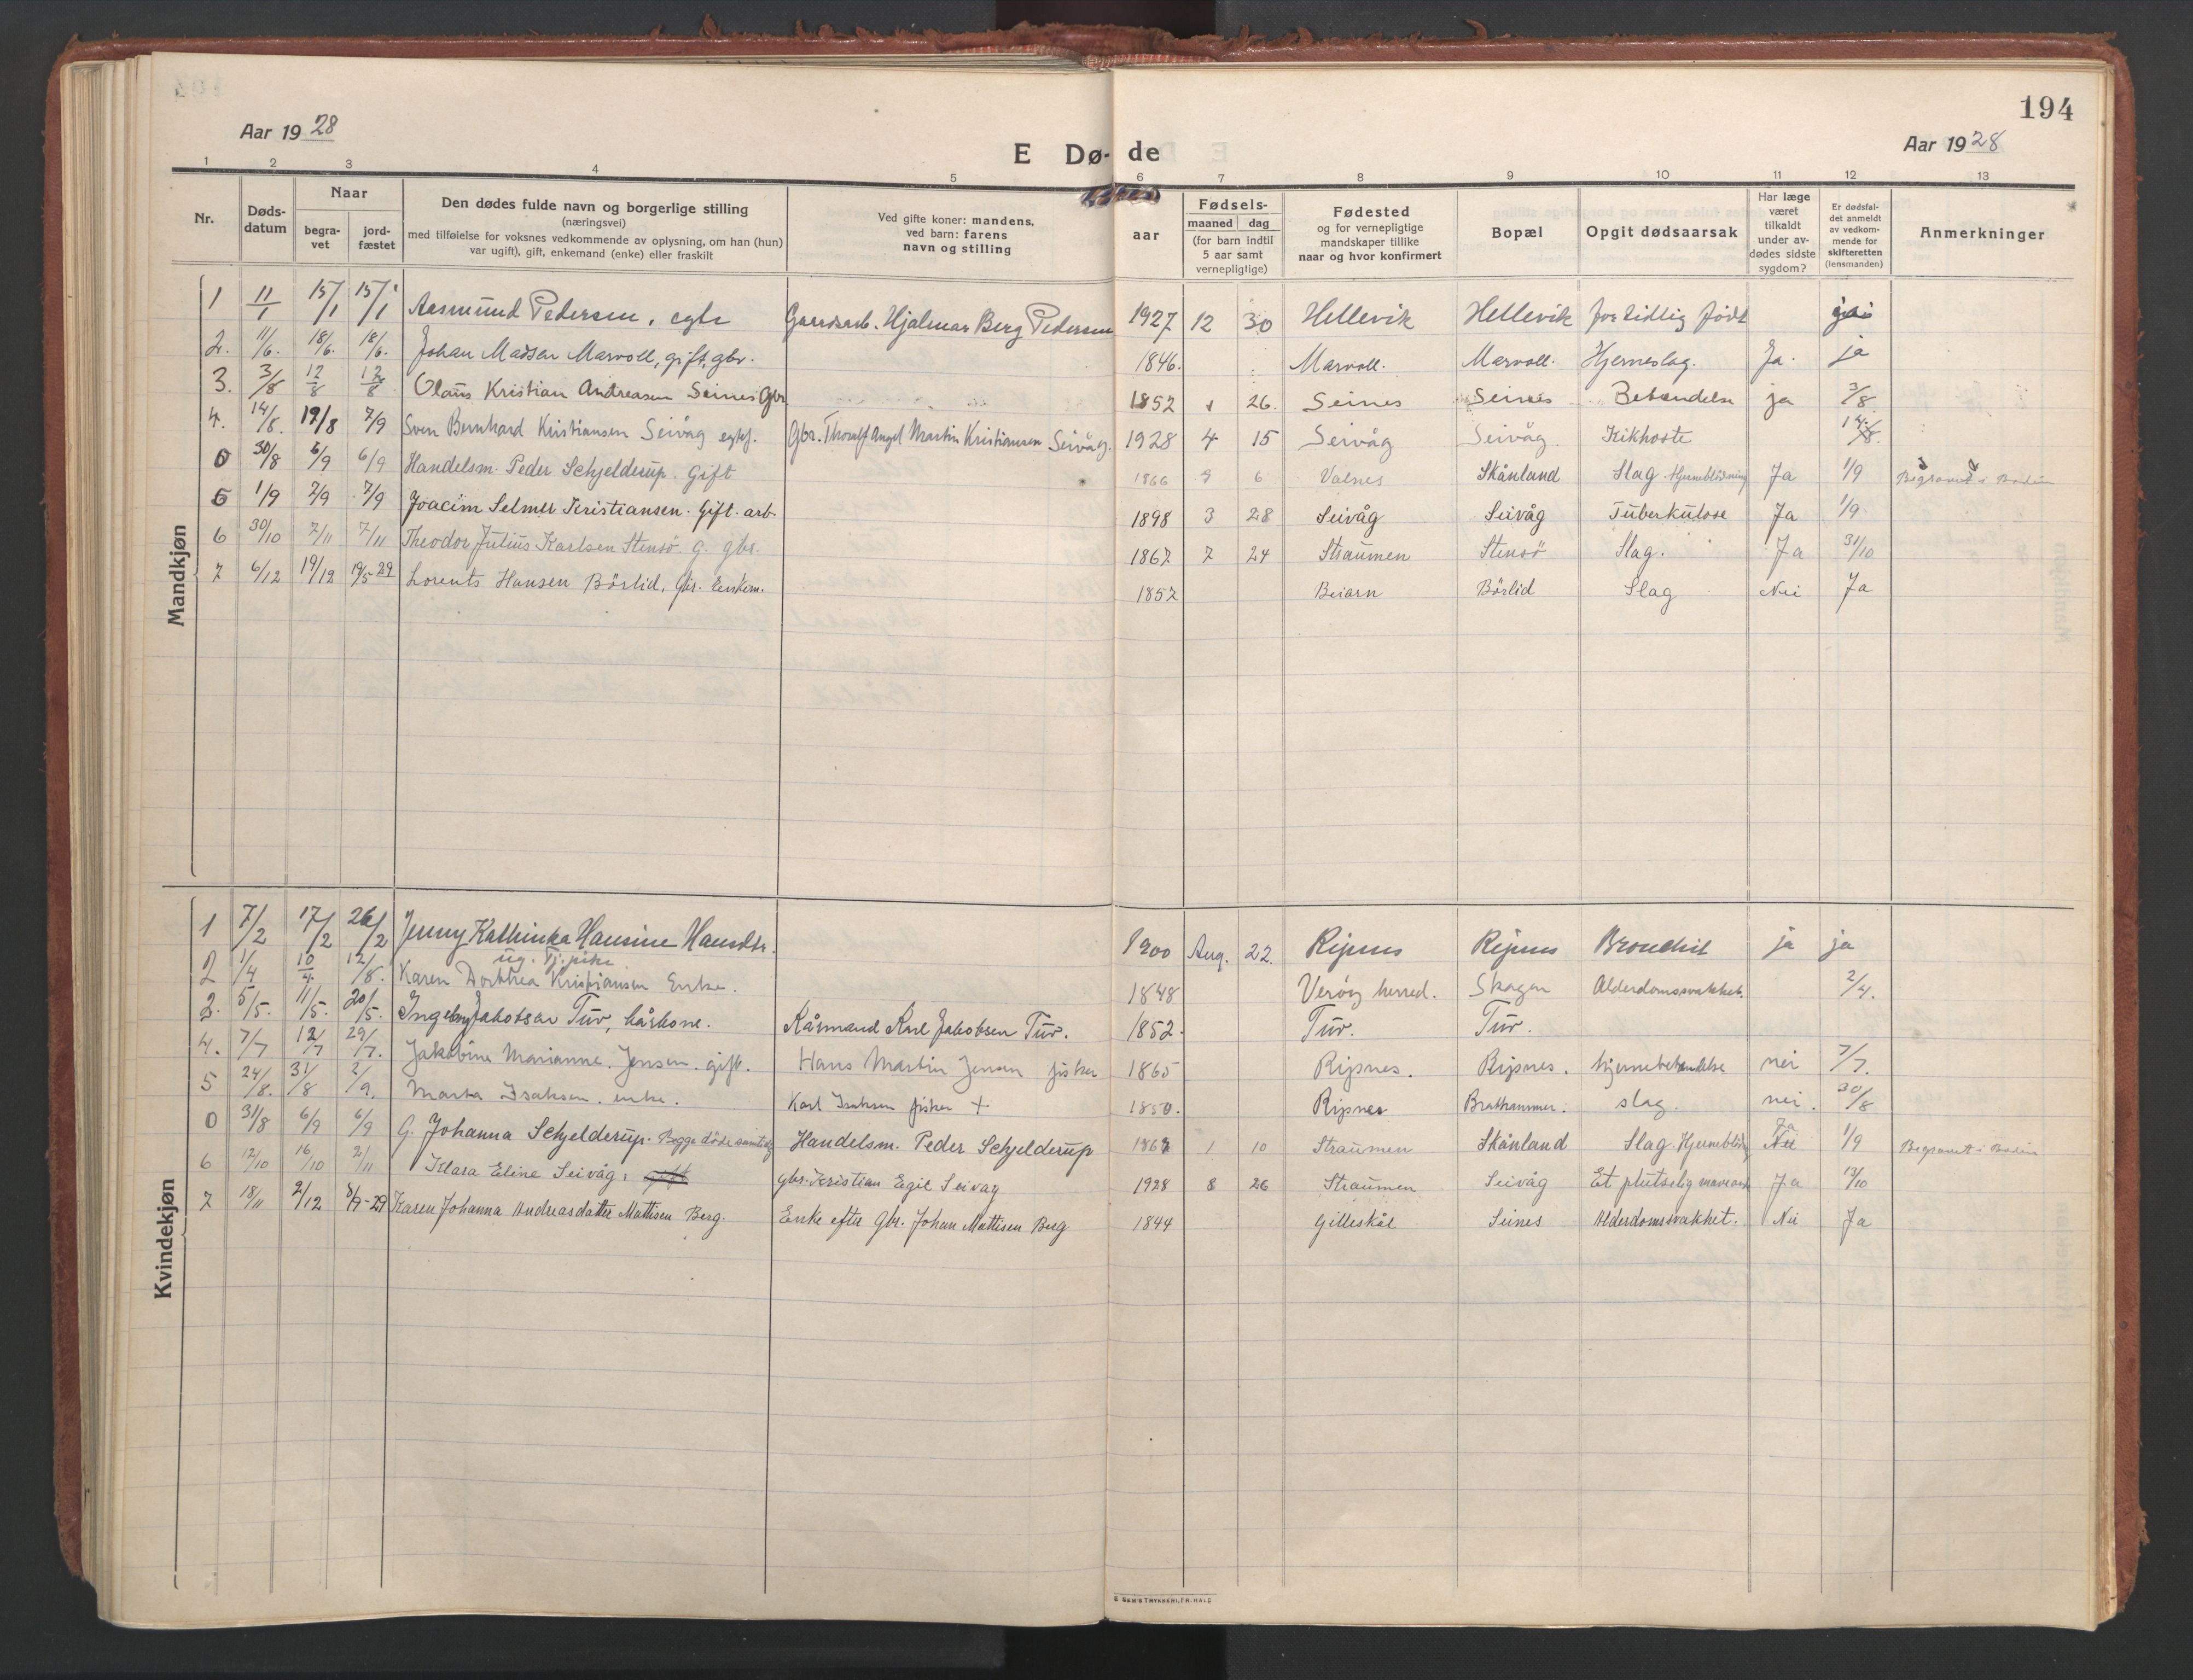 194
Aar 1928
Aar 1928
E Dø- de
1 2 3 4 5 6 7 8 9 10 11 12 13
Nr.
Døds-
datum
Naar
begra-
vet
jord-
fæstet
Den dødes fulde navn og borgerlige stilling
(næringsvei)
med tilføielse for voksnes vedkommende av oplysning, om han (hun)
var ugift), gift, enkemand (enke) eller fraskilt
Ved gifte koner: mandens,
ved barn: farens
navn og stilling
aar
Fødsels-
maaned dag
(for barn indtil
5 aar samt
vernepligtige)
Fødested
og for vernepligtige
mandskaper tillike
naar og hvor konfirmert
Bopæl
Opgit dødsaarsak
Har læge
været
tilkaldt
under av-
dødes sidste
sygdom?
Er dødsfal-
det anmeldt
av vedkom-
mende for
skifteretten
(lensmanden)
Anmerkninger
Mandkjøn
1 11/1 15/1 15/1 Aasmund Pedersen, egte Gaardsarb. Hjalmar Berg Pedersen 1927 12 30 Hellevik Hellevik for tidlig født
2. 11/6. 18/6. 18/6. Johan Madsen Marvoll, gift, gbr. 1846. Marvoll. Marvoll. Hjerneslag. Ja. ja
3. 3/8 12/8 12/8 Olaus Kristian Andreasen Seines Gbr 1852 26. Seines Seines Betendelse ja 3/8
4. 14/8. 19/8 7/9 Sven Bernhard Kristiansen Seivåg egtef. Gbr. Thoralf Angel Martin Kristiansen Seivåg. 1928 4 15 Seivåg Seivåg. Kikhoste 14/8.
0 30/8 6/9 6/9 Handelsm. Peder Schjelderup. Gift 1866 9 6 Valnes Skånland Slag. Hjerneblödning Ja 1/9 Begravet i Bodin
5 1/9 7/9 7/9 Joacim Selmer Kristiansen. Gift. arb. 1898 3 28 Seivåg Seivåg Tuberkulose Ja 1/9
6 30/10 7/11 7/11 Theodor Julius Karlsen Stensö. G. gbr. 1867 7 24 Straumen Stensö Slag. Ja 31/10
7 6/12 19/12 19/5 29 Lorents Hansen Börlid, Gbr. Enkem. 1852 Beiarn Börlid Slag Nei Ja
Kvindekjøn
1 7/2 17/2 26/2 Jenny Kathinka Hansine Hansdtr. 1900 Aug. 22. Ripnes Ripnes Bronchit ja ja
ug. Tj.pike
2 1/4 10/4. 12/8. Karen Dorthea Kristiansen Enke. 1848 Verøy herred. Skagen Alderdomssvakhet. 2/4.
3. 5/5. 11/5. 20/5. Ingeborg Jakobsen Tuv, kårkone. Kårmand Karl Jakobsen Tuv. 1852. Tuv. Tuv.
4. 7/7 12/7 29/7. Jakobine Marianne Jensen. gift. Hans Martin Jensen fisker 1865 Ripnes. Ripnes. hjernebetendelse nei 7/7.
5 24/8. 31/8 2/9. Marta Isaksen. enke. Karl Isaksen fisker + 1850. Ripnes Brathammer. slag. nei. 30/8
0 31/8 6/9 6/9 G. Johanna Schjelderup. Begge döde samtidig Handelsm. Peder Schjelderup 1867 1 10 Straumen Skånland Slag. Hjerneblödn Ja Nei 1/9 Begravet i Bodin
6 12/10 16/10 2/11 Klara Eline Seivåg, gift gbr. Kristian Egil Seivåg 1928 8 26 Straumen Seivåg Et plutselig Ja 13/10
7 18/11 2/12 8/9-29 Karen Johanna Andreasdatter Mattisen Berg. Enke efter Gbr. Johan Mattisen Berg 1844 Gilleskål Seines Alderdomssvakhet. Nei Ja